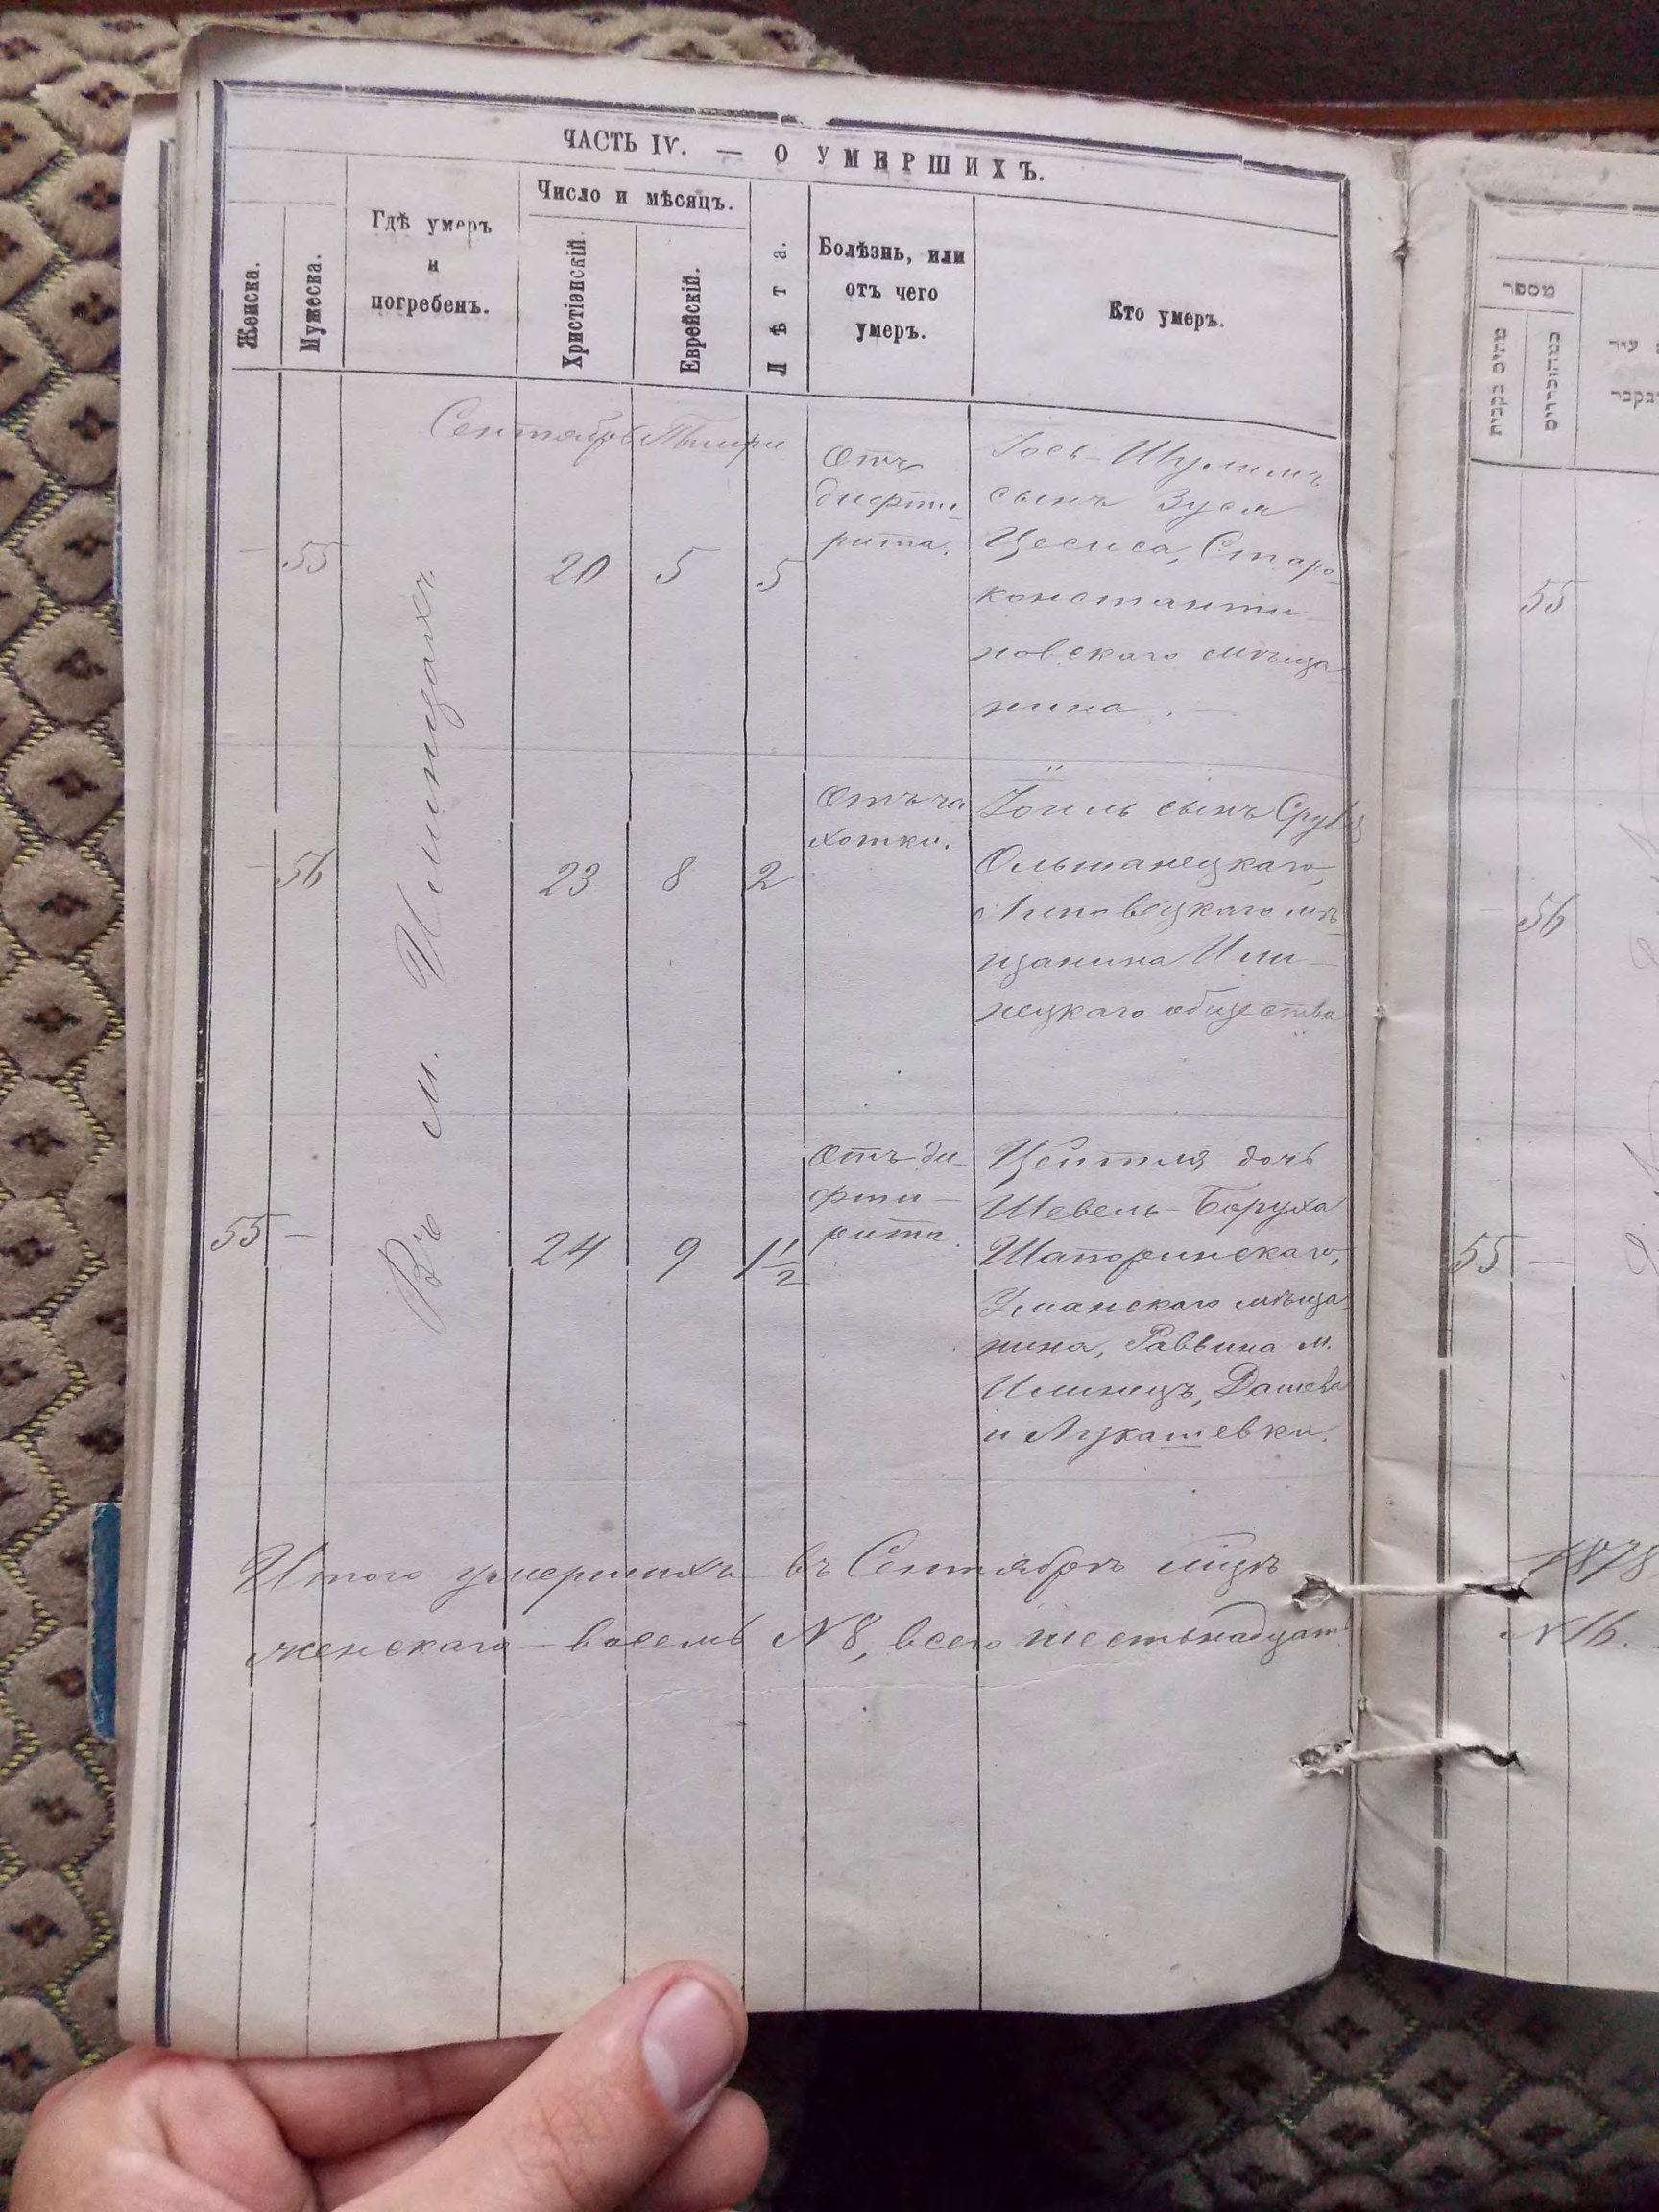 ЧАСТЬ IV. — О УМЕРШИХЪ.
Женска.
Мужеска.
Гдѣ умеръ
и
погребенъ.
Число и мѣсяцъ.
Христіанскій.
Еврейскій.
Лѣта.
Болѣзнь, или
отъ чего
умеръ.
Кто умеръ.
Сентябрь Тишри
Въ м. Илинцахъ
— 55 20 5 5
Отъ
дифти-
рита.
Іось-Шулимъ
сынъ Зуся
Цесиса, Старо-
константи-
новскаго мѣща
нина. —
— 56 23 8 2
Отъ ча
хотки.
сынъ
Ольшанецкаго,
Липовецкаго мѣ-
щанина Или-
нецкаго общества
55 — 24 9 1 1/2
Отъ ди-
фти-
рита.
Цейтля дочь
Шевель-Боруха
Шапоринскаго,
Уманскаго мѣща
нина, Раввина м.
Илинецъ, Дашева
и Лукашевки.
Итого умершихъ въ Сентябрѣ мѣцѣ
женскаго — восемь N 8, всего шестьнадцать
מספר
55
56
55 —
1878
N 16.